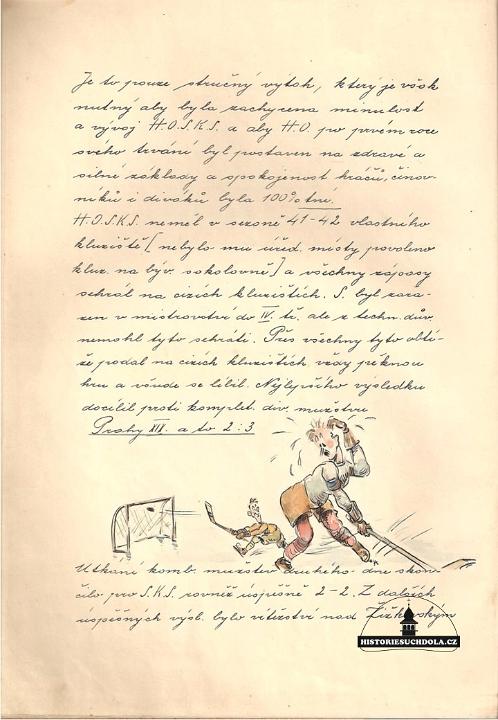 Je to pouze stručný výtah, který je však
nutný aby byla zachycena minulost
a vývoj H.O.S.K.S. a aby H.O. po prvém roce
svého trvání byl postaven na zdravé a
silné základy a spokojenost hráčů, činov-
níků i diváků byla 100%tní.
H.O.SK.S. neměl v sezoně 41-42 vlastního
kluziště [nebylo mu úřed. místy povoleno
kluz. na býv. sokolovně] a všechny zápasy
sehrál na cizích kluzištích. S. byl zařa-
zen v mistrovství do IV. tř. ale z techn. dův.
nemohl tyto sehráti. Přes všechny tyto obtí-
že podal na cizích kluzištích vždy pěknou
hru a všude se líbil. Nejlepšího výsledku
docílil proti komplet. div. mužstvu
Prahy XIX. a to 2:3
Utkání komb. mužstev druhého dne skon-
čilo pro S.K.S. rovněž úspěšně 2-2. Z dalších
úspěšných výsl. bylo vítězství nad Žižkovským
HISTORIESUCHDOLA.CZ